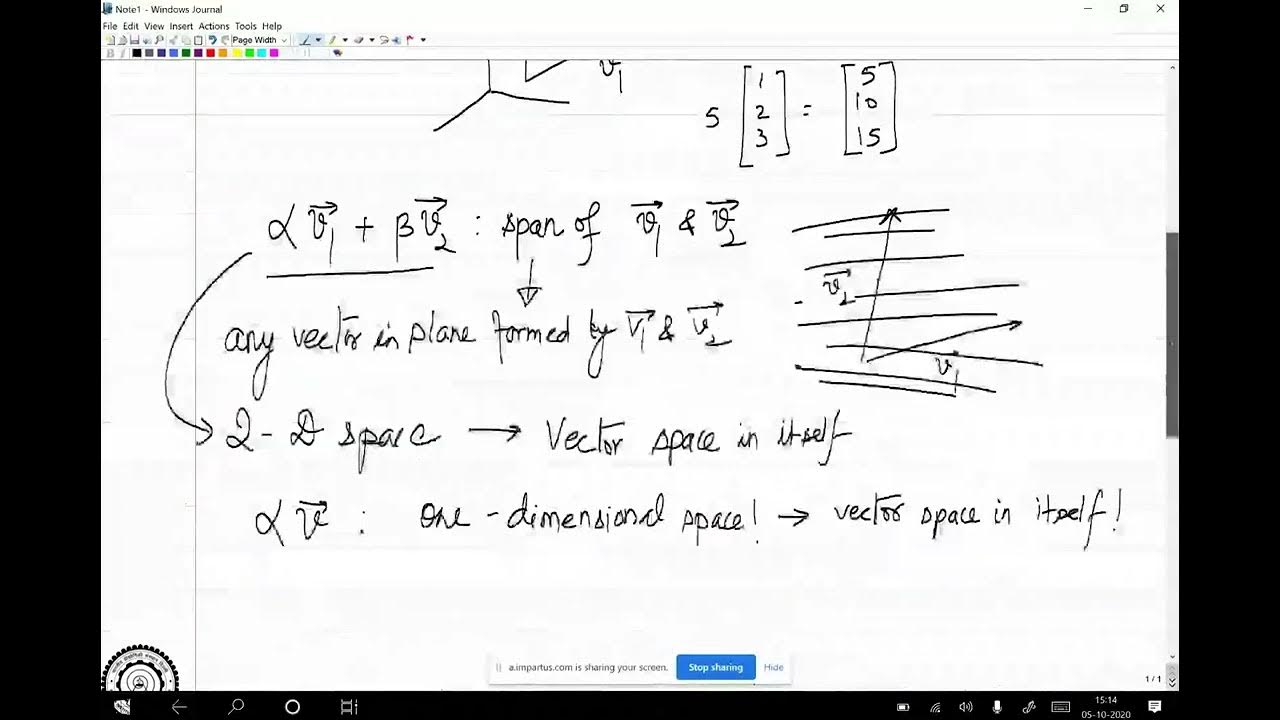 Note1 - Windows Journal
File Edit View Insert Actions Tools Help
Page Width
v⃗1
5 [1 2 3] = [5 10 15]
α v⃗1 + β v⃗2 : span of v⃗1 & v⃗2
v⃗2
any vector in plane formed by v⃗1 & v⃗2
v1
2-D space → Vector space in itself
α v⃗ : one-dimensional space! → vector space in itself!
a.impartus.com is sharing your screen. Stop sharing Hide
1 / 1
15:14
05-10-2020